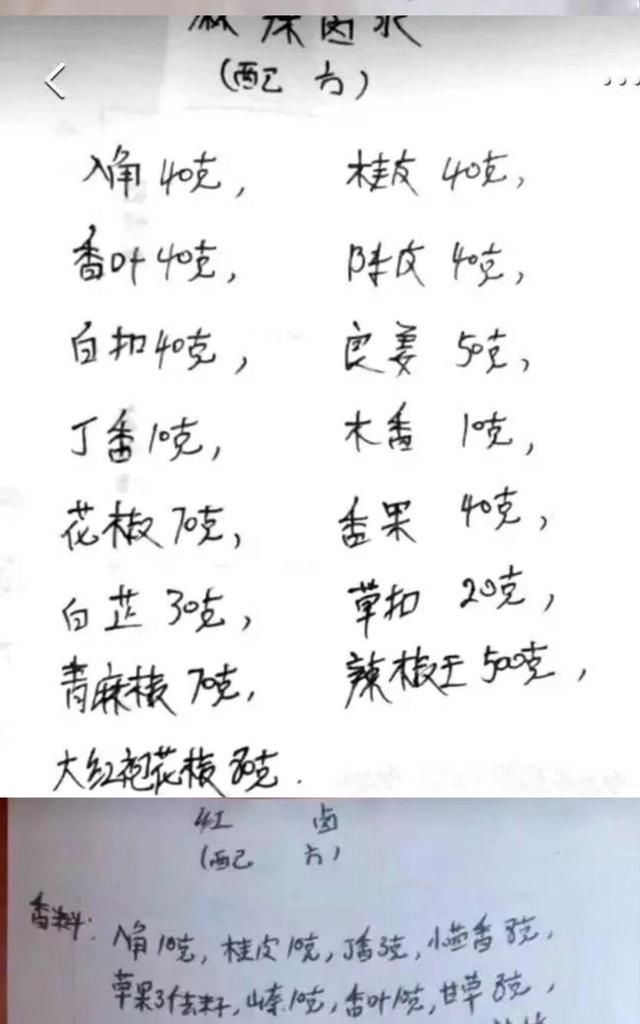 麻辣卤水
(配方)
八角40克, 桂皮40克,
香叶40克, 陈皮40克,
白扣40克, 良姜50克,
丁香10克, 木香10克,
花椒70克, 香果40克,
白芷30克, 草扣20克,
青麻椒70克, 辣椒王500克,
大红袍花椒80克.
红卤
(配方)
香料: 八角10克, 桂皮10克, 丁香3克, 小茴香8克,
草果3个去籽, 山奈10克, 香叶10克, 甘草8克,